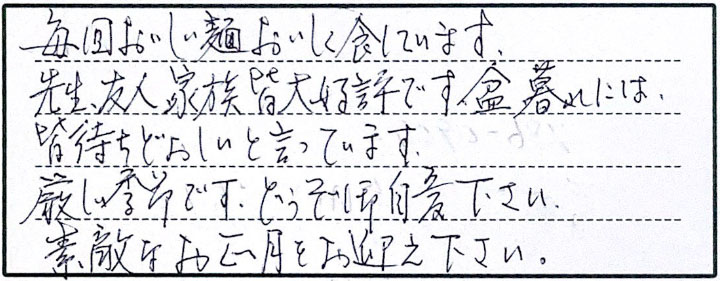 毎回おいしい麺おいしく食しています。
先生、友人、家族皆大好評です。盆暮れには、
皆待ちどおしいと言っています。
厳しい季節です、どうぞ御自愛下さい。
素敵なお正月をお迎え下さい。